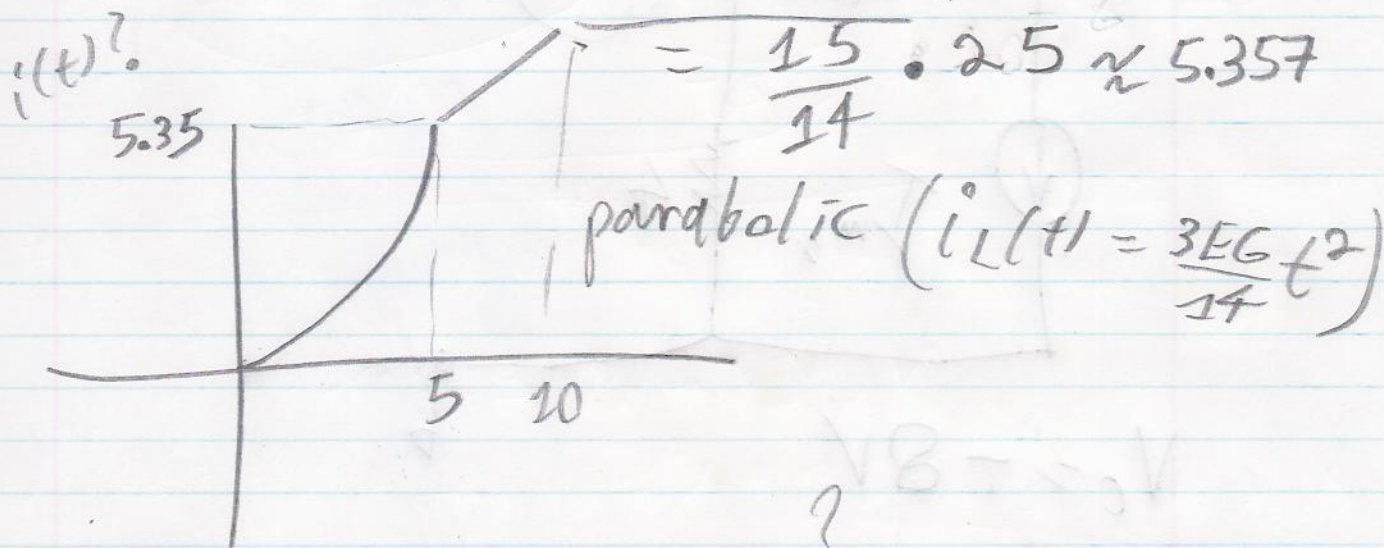 i(t)?
= 15/14 . 25 ≈ 5.357
5.35
parabolic (iL(t) = 3E6/14 t²)
5 10
?
V₀ = -8V